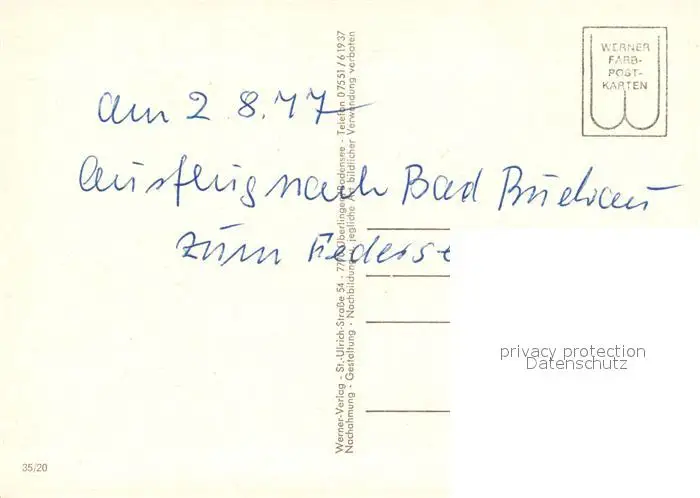 WERNER
FARB-
POST-
KARTEN
am 2 8.77
Ausflug nach Bad Buchau
zum Federse
Werner-Verlag - St.-Ulrich-Straße 54 - Überlingen/Bodensee - Telefon 07551/61937
Nachahmung - Gestaltung - Nachbildung - jegliche Art bildlicher Verwendung verboten
privacy protection
Datenschutz
35/20